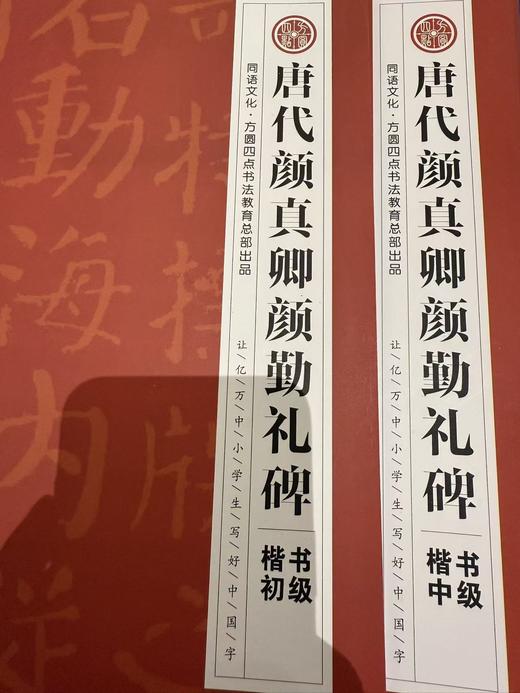 特操
動海内
唐代颜真卿颜勤礼碑
楷书
初级
同语文化·方圆四点书法教育总部出品
让/亿/万/中/小/学/生/写/好/中/国/字
唐代颜真卿颜勤礼碑
楷书
中级
同语文化·方圆四点书法教育总部出品
让/亿/万/中/小/学/生/写/好/中/国/字